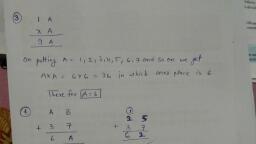 ③ 1 A
x A
9 A
On putting A = 1, 2, 3, 4, 5, 6, 7 and so on we get
A x A = 6 x 6 = 36 in which ones place is 6
There for A = 6
④ A B ① 2 5
+ 3 7 + 3 7
6 A 6 2